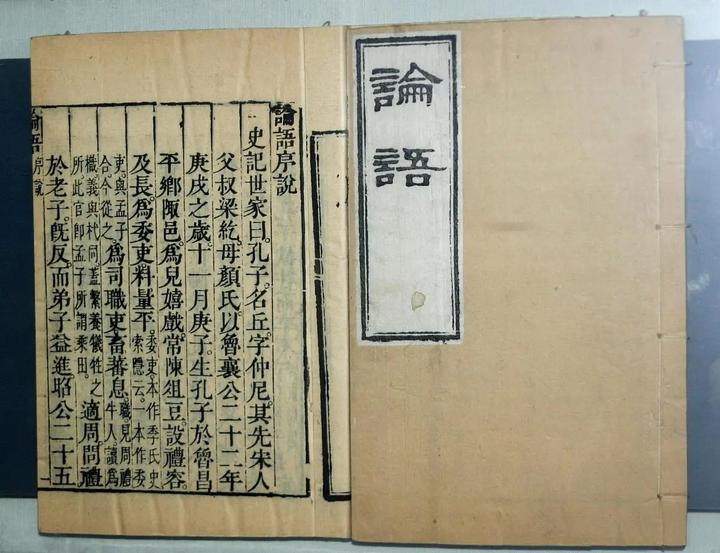 論語
論語序說
史記世家曰。孔子。名丘。字仲尼。其先宋人
父叔梁紇。母顏氏。以魯襄公二十二年
庚戌之歲。十一月庚子。生孔子於魯昌
平鄉陬邑。爲兒嬉戲。常陳俎豆。設禮容。
及長。爲委吏。料量平。委吏。本作季氏史。索隱云。一本作委
吏。與孟子合。今從之。爲司職吏。畜蕃息。職見周禮牛人。讀爲
樴。義與杙同。蓋繫養犧牲之所。此官即孟子所謂乘田。適周。問禮
於老子。旣反。而弟子益進。昭公二十五
論語 序說 一